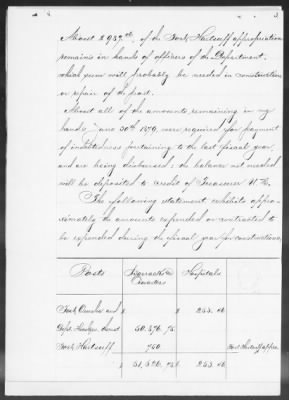 3
About $2937.00 of the Fort Hartsuff appropriation
remains in hands of officers of the Department,
which sum will probably be needed in construction
or repair of the post.
About all of the amounts remaining in my
hands June 30th 1879, were required for payment
of indebtedness pertaining to the last fiscal year,
and are being disbursed; the balance not needed
will be deposited to credit of Treasurer U.S.
The following statement exhibits approx-
imately the amounts expended or contracted to
be expended during the fiscal year for construction,
Posts Barracks & Quarters Hospitals
Fort Omaha and $ 253.06
Dept. Hdqrs. 50,576.75
Fort Hartsuff 750 Fort Hartsuff appro.
$ 51,326.75 $ 253.06